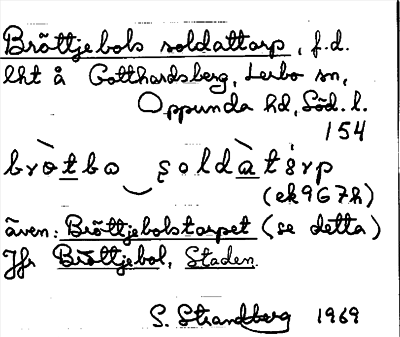 Bröttjebols soldattorp, f.d.
lht å Gotthardsberg, Lerbo sn,
Oppunda hd, Söd. l.
154
bròtbo soldàtårp
(ek967h)
även: Bröttjebolstorpet (se detta)
Jfr Bröttjebol, Staden.
S. Strandberg 1969